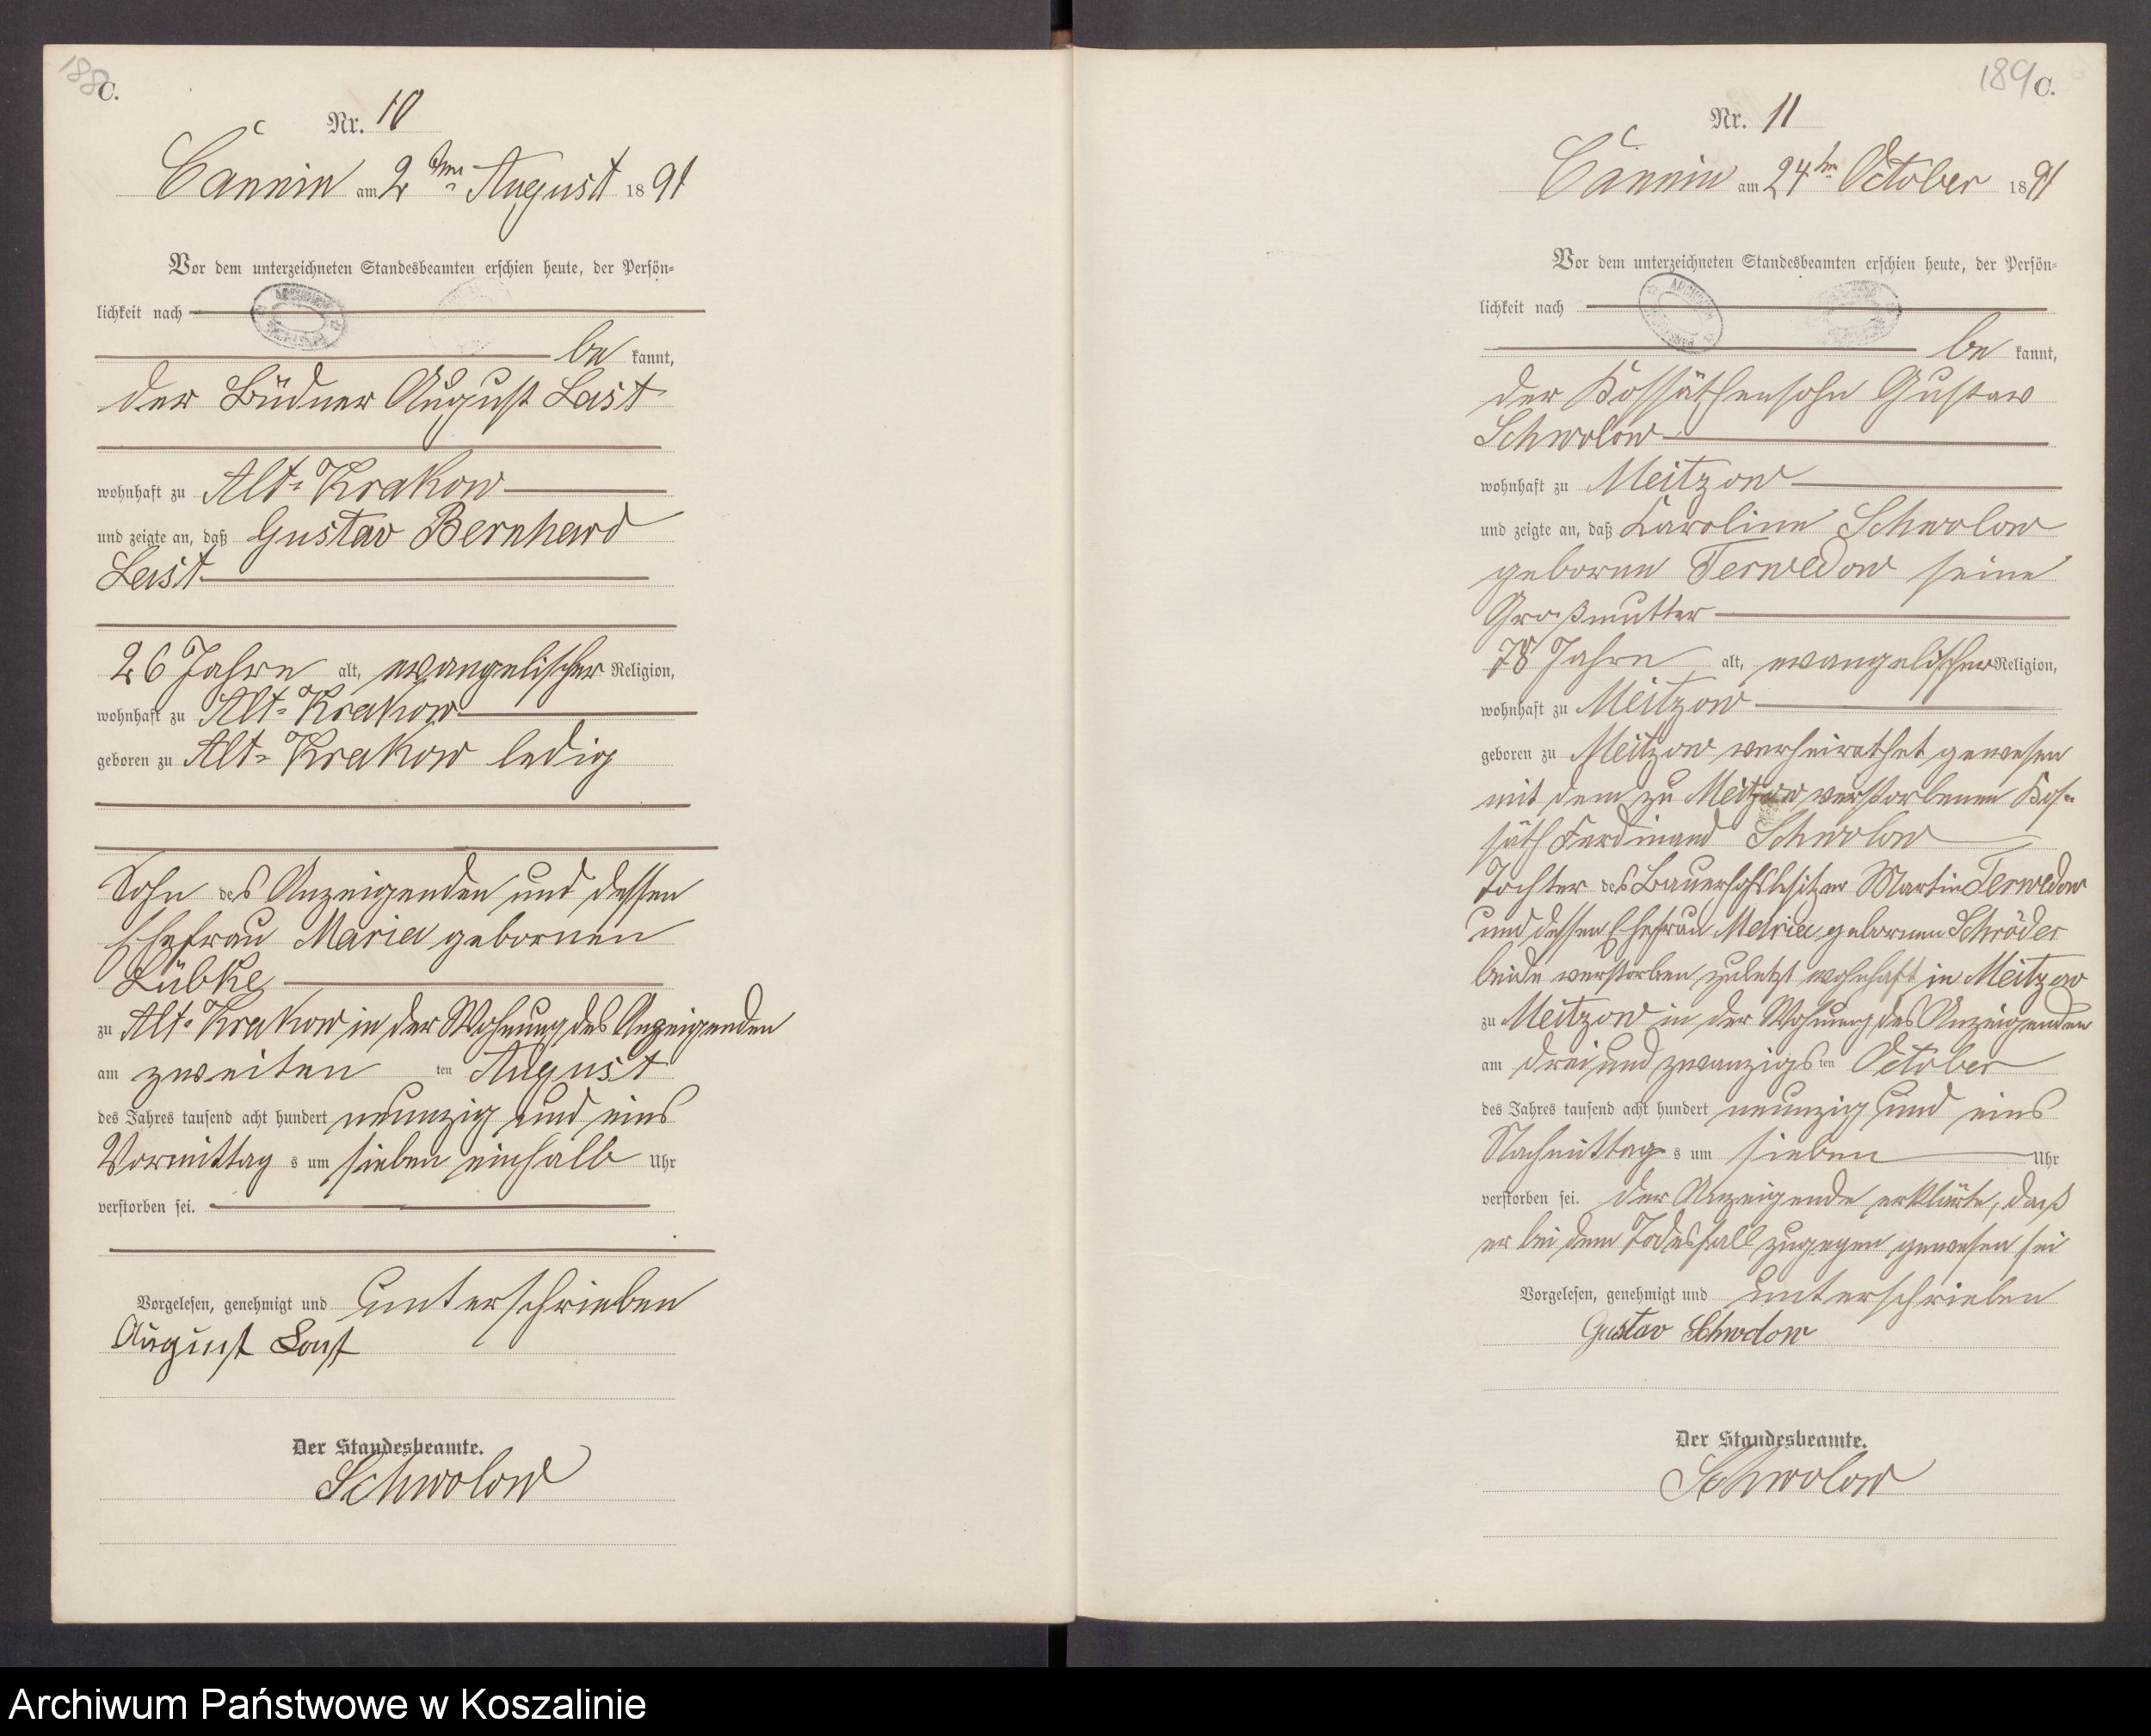 188
C.
Nr. 10
Cannin am 2ten August 1891
Vor dem unterzeichneten Standesbeamten erschien heute, der Persön=
lichkeit nach
be kannt,
der Büdner August Last
wohnhaft zu Alt=Krakow
und zeigte an, daß Gustav Bernhard
Last
26 Jahre alt, evangelischer Religion,
wohnhaft zu Alt=Krakow
geboren zu Alt=Krakow ledig
Sohn des Anzeigenden und dessen
Ehefrau Maria gebornen
Lübke
zu Alt=Krakow in der Wohnung des Anzeigenden
am zweiten ten August
des Jahres tausend acht hundert neunzig und eins
Vormittag s um sieben einhalb Uhr
verstorben sei.
Vorgelesen, genehmigt und unterschrieben
August Last
Der Standesbeamte.
Schwolow
189
C.
Nr. 11
Cannin am 24ten October 1891
Vor dem unterzeichneten Standesbeamten erschien heute, der Persön=
lichkeit nach
be kannt,
der Kossäthensohn Gustav
Schwolow
wohnhaft zu Meitzow
und zeigte an, daß Karoline Schwolow
geborne Terwedow seine
Großmutter
78 Jahre alt, evangelischer Religion,
wohnhaft zu Meitzow
geboren zu Meitzow verheirathet gewesen
mit dem zu Meitzow verstorbenen Kos=
säth Ferdinand Schwolow
Tochter des Bauerhofsbesitzer Martin Terwedow
und dessen Ehefrau Maria gebornen Schröder
beide verstorben zuletzt wohnhaft in Meitzow
zu Meitzow in der Wohnung des Anzeigenden
am drei und zwanzigs ten October
des Jahres tausend acht hundert neunzig und eins
Nachmittag s um sieben Uhr
verstorben sei. Der Anzeigende erklärte, daß
er bei dem Todesfall zugegen gewesen sei
Vorgelesen, genehmigt und unterschrieben
Gustav Schwolow
Der Standesbeamte.
Schwolow
Archiwum Państwowe w Koszalinie